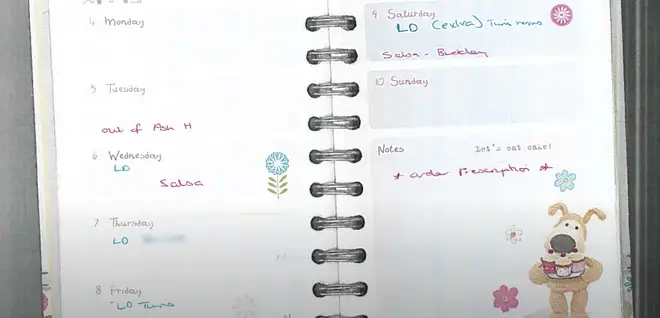 4 Monday
5 Tuesday
out of Ash H
6 Wednesday
LD
Salsa
7 Thursday
LD
8 Friday
LD Twins
9 Saturday
LD (extra) Twins
Salsa - Buckley
10 Sunday
Notes
Let's eat cake!
* order Prescription *